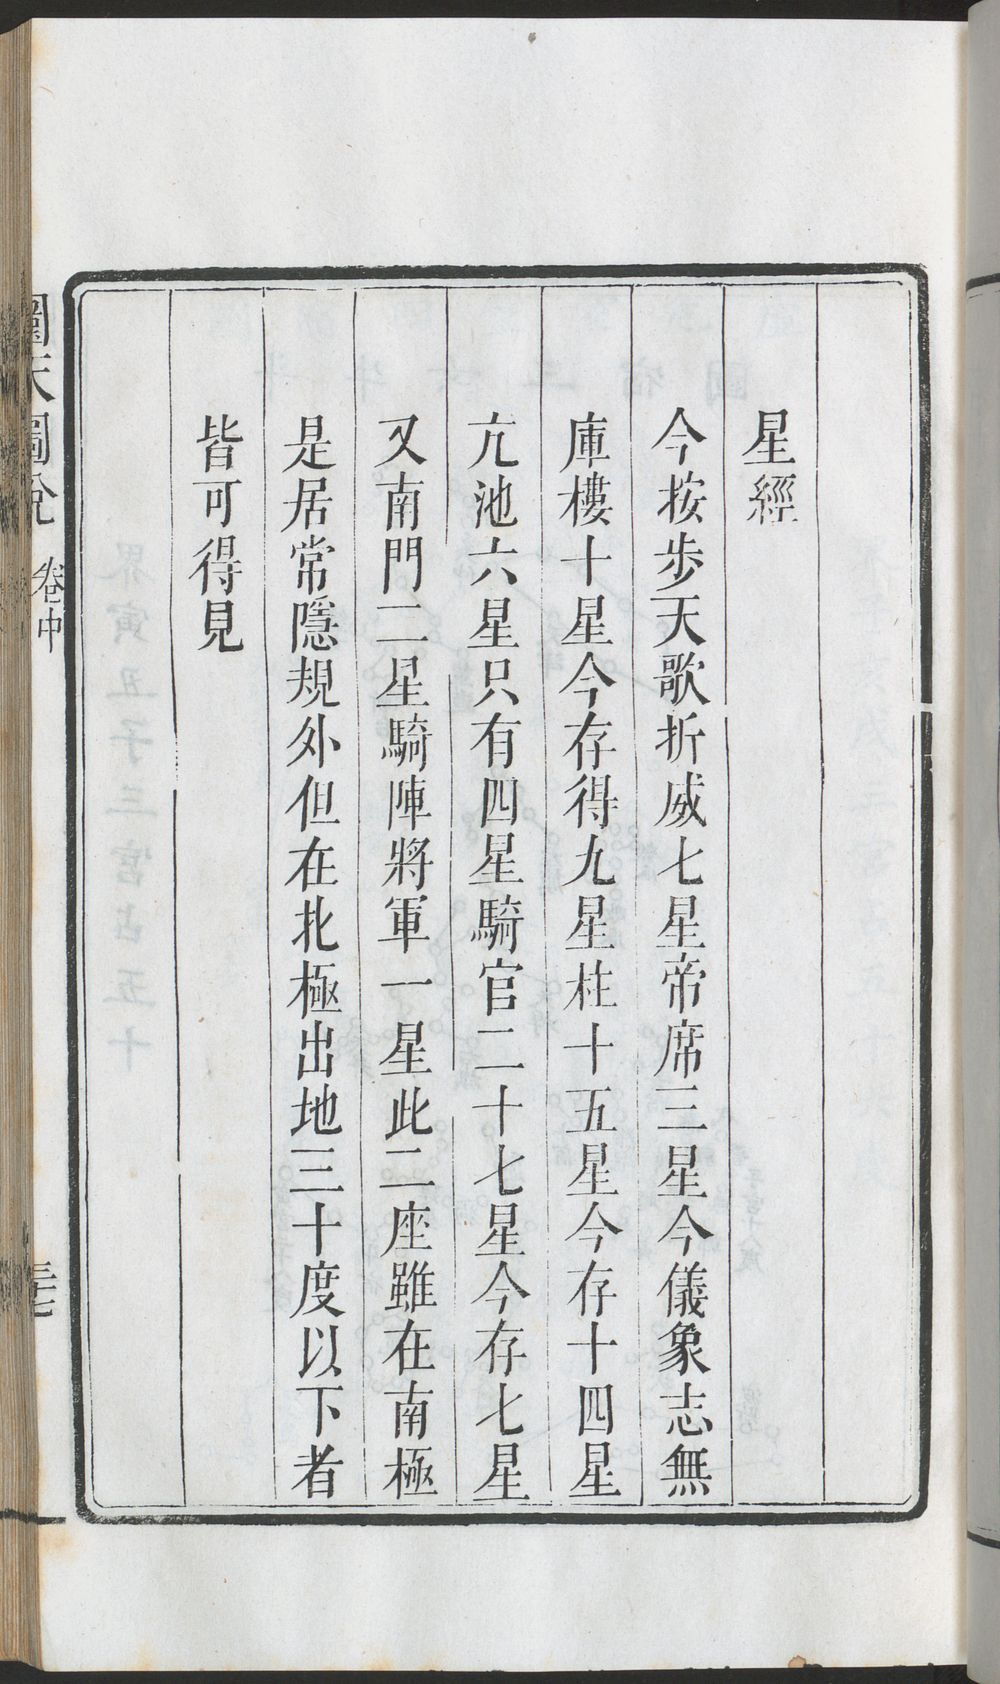 星經
今按步天歌折威七星帝席三星今儀象志無
庫樓十星今存得九星柱十五星今存十四星
亢池六星只有四星騎官二十七星今存七星
又南門二星騎陣將軍一星此二座雖在南極
是居常隱規外但在北極出地三十度以下者
皆可得見
圜天圖說
卷中
三十七